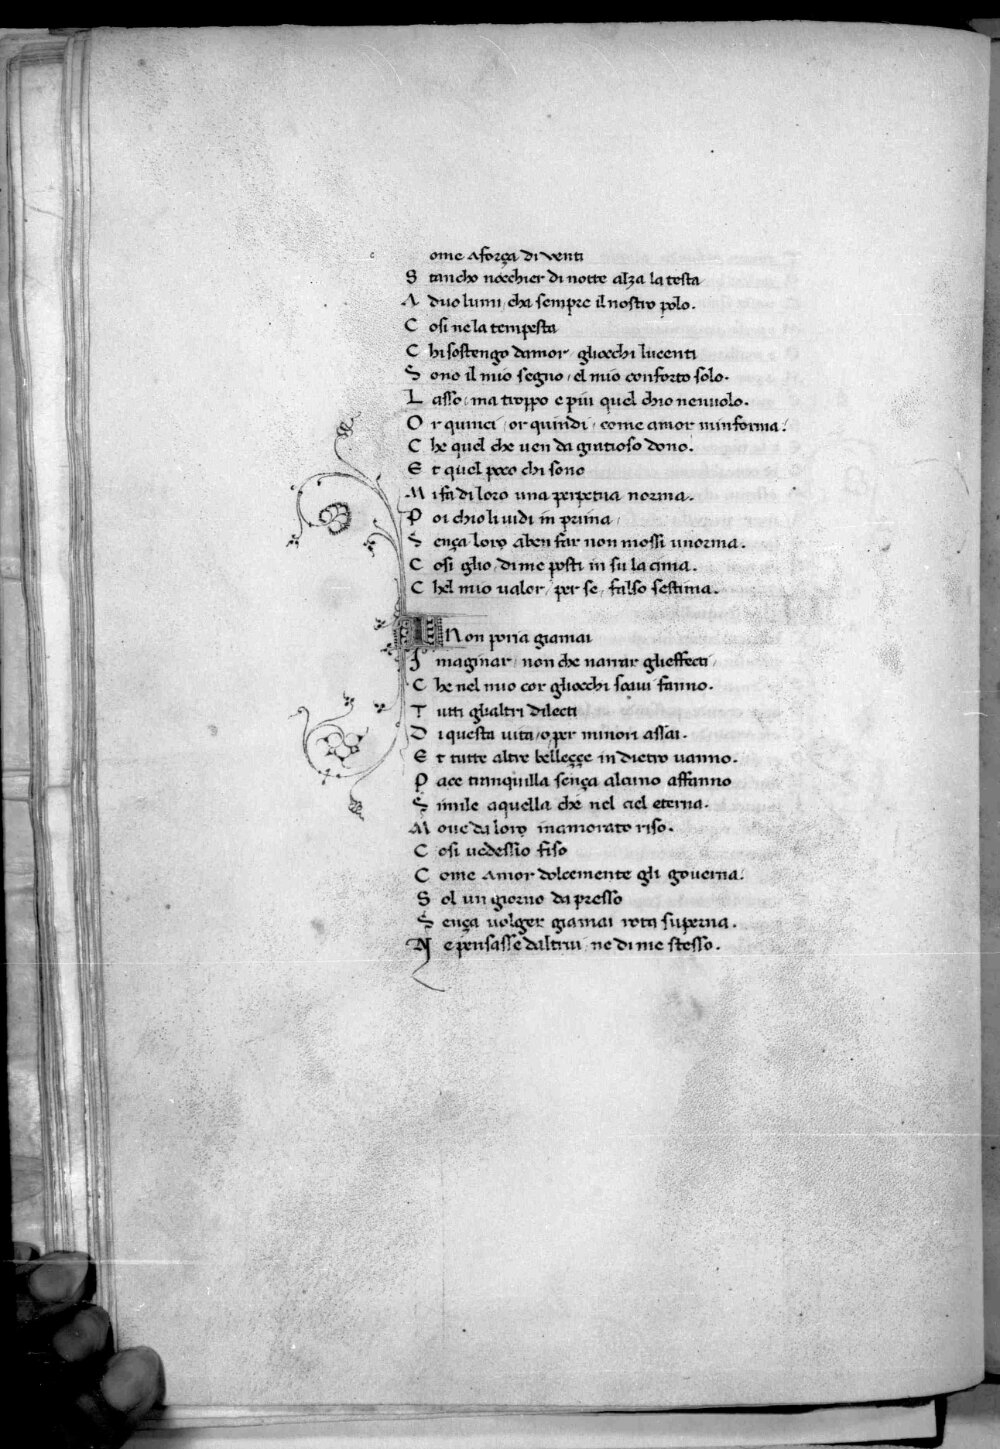 c ome aforça di venti
S tancho nocchier di notte alza la testa
A duo lumi, cha sempre il nostro polo.
C osi ne la tempesta
C hi sostengo damor, gliocchi lucenti
S ono il mio segno, el mio conforto solo.
L asso, ma troppo e piu quel chio nenuolo.
O r quinci, or quindi, come amor minforma.
C he quel che uen da gratioso dono.
E t quel poco chi sono
M i fa di loro una perpetua norma.
P oi chio li uidi in prima,
S ença loro aben far non mossi unorma.
C osi glio, di me posti in su la cima.
C hel mio ualor, per se, falso sestima.
I N on poria giamai
I maginar, non che narrar glieffecti,
C he nel mio cor gliocchi soaui fanno.
T utti glialtri dilecti
D i questa uita, o per minori assai.
E t tutte altre belleççe in dietro uanno.
P ace tranquilla sença alcuno affanno
S imile aquella che nel ciel eterna.
M oue da loro inamorato riso.
C osi uedessio fiso
C ome Amor dolcemente gli gouerna.
S ol un giorno da presso
S ença uolger giamai rota superna.
N e pensasse daltrui, ne di me stesso.